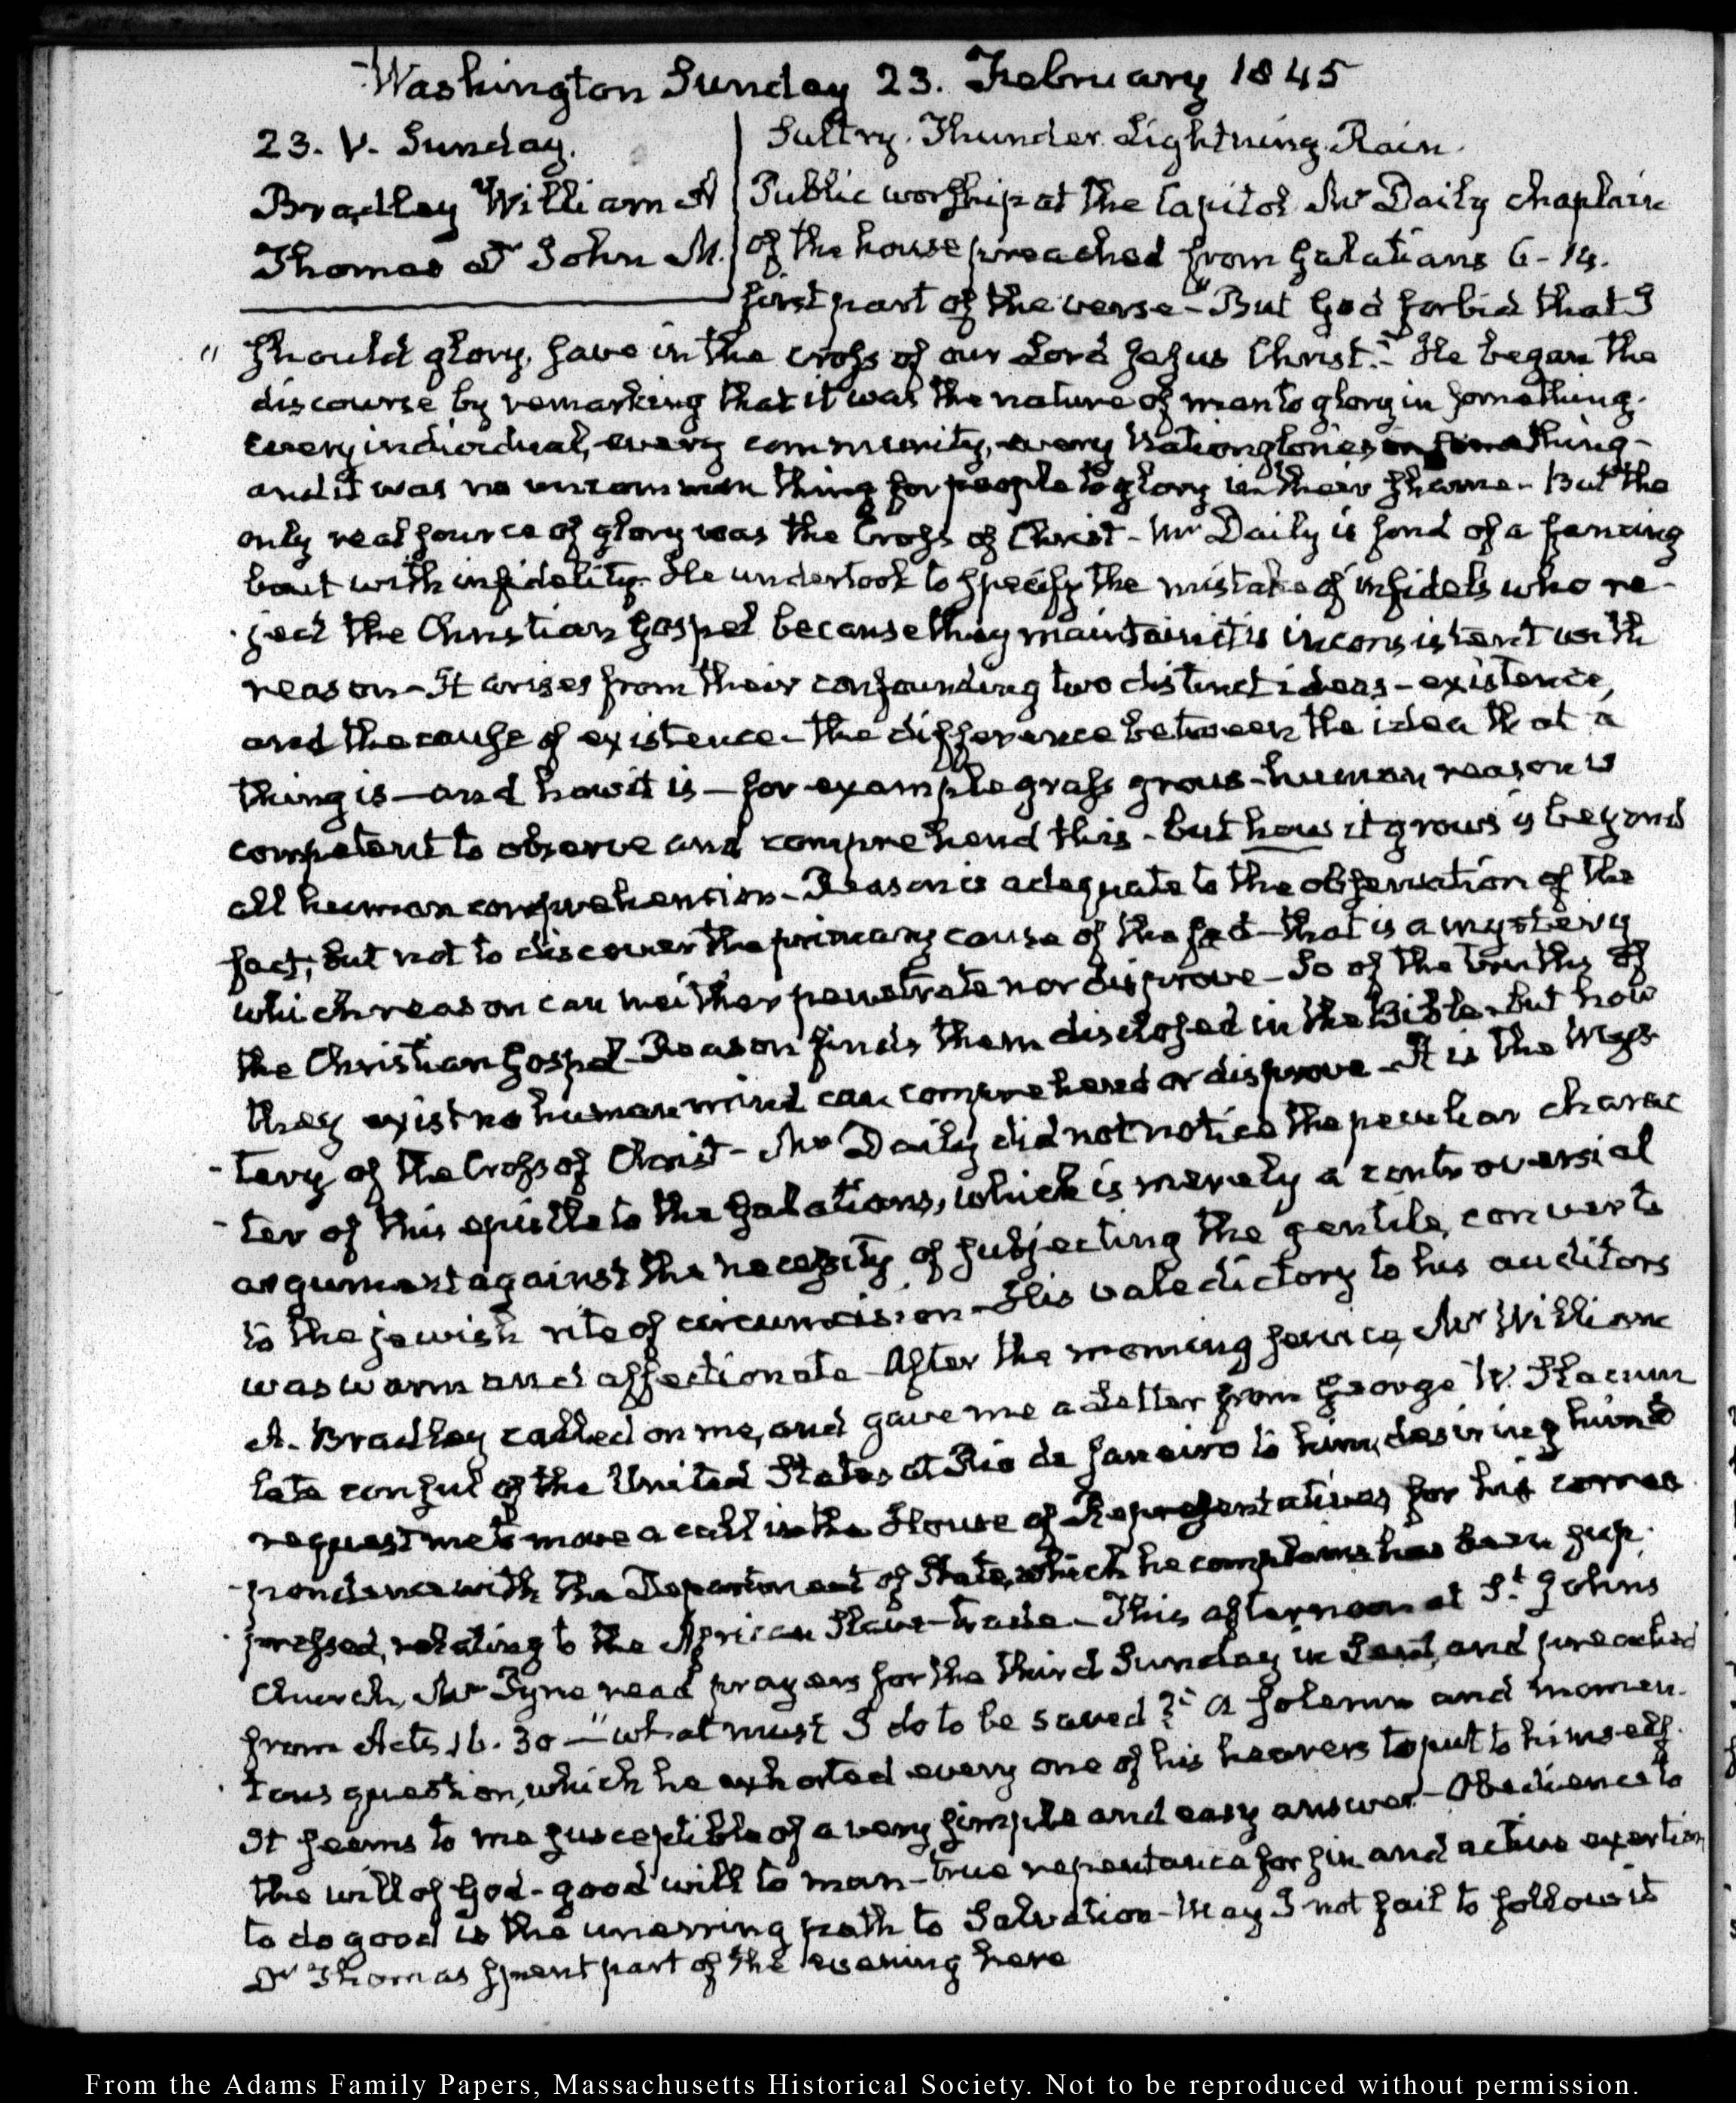 Washington Sunday 23. February 1845
23. V. Sunday.
Bradley William A
Thomas Dr John M.
Sultry. Thunder Lightning Rain.
Public worship at the Capitol Mr Daily chaplain
of the house preached from Galatians 6-14.
first part of the verse - "But God forbid that I
" should glory, save in the cross of our Lord Jesus Christ." He began the
discourse by remarking that it was the nature of man to glory in something.
Every individual, every community, every Nation glories in something -
and it was no uncommon thing for people to glory in their shame - But the
only real source of glory was the Cross of Christ - Mr Daily is fond of a fencing
bout with infidelity. He undertook to specify the mistake of infidels who re-
ject the Christian Gospel because they maintain it is inconsistent with
reason - It arises from their confounding two distinct ideas - existence,
and the cause of existence - the difference between the idea that a
thing is - and how it is - for example grass grows - human reason is
competent to observe and comprehend this - but how it grows is beyond
all human comprehension - Reason is adequate to the observation of the
fact; but not to discover the primary cause of the fact - that is a mystery
which reason can neither penetrate nor disprove - So of the truths of
the Christian Gospel - Reason finds them disclosed in the Bible - but how
they exist no human mind can comprehend or disprove - It is the Mys-
-tery of the Cross of Christ - Mr Daily did not notice the peculiar charac
-ter of this epistle to the Galatians, which is merely a controversial
argument against the necessity of subjecting the gentile converts
to the jewish rite of circumcision - His valedictory to his auditors
was warm and affectionate - After the morning service, Mr William
A. Bradley called on me, and gave me a Letter from George W. Slacum
late consul of the United States at Rio de Janeiro to him, desiring him to
request me to move a call in the House of Representatives for his corres
-pondence with the Department of State, which he complains has been sup-
pressed, relating to the African Slave-trade - This afternoon at St. Johns
Church, Mr Tyne read prayers for the third Sunday in Lent, and preached
from Acts 16. 30 - "what must I do to be saved?" A solemn and momen-
tous question, which he exhorted every one of his hearers to put to himself.
It seems to me susceptible of a very simple and easy answer - Obedience to
the will of God - good will to man - true repentance for sin and active exertion
to do good is the unerring path to Salvation - May I not fail to follow it
Dr Thomas spent part of the evening here
From the Adams Family Papers, Massachusetts Historical Society. Not to be reproduced without permission.